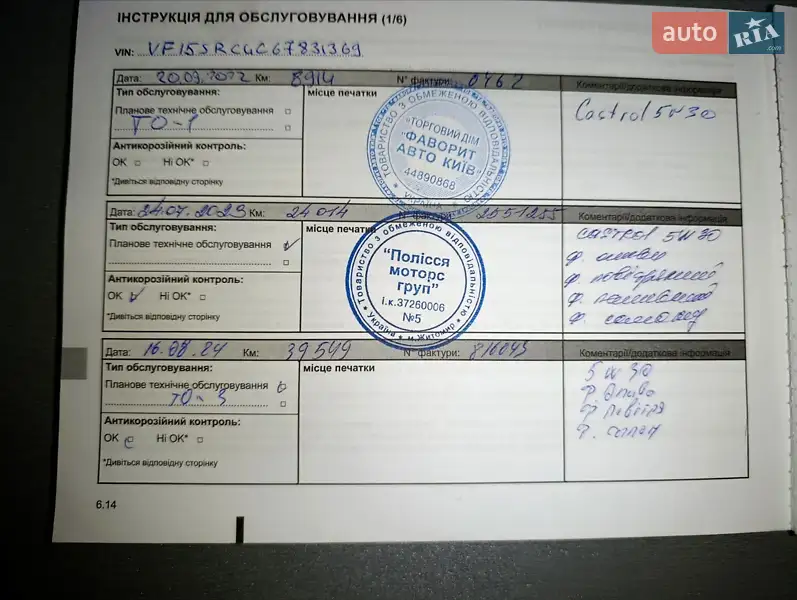 ІНСТРУКЦІЯ ДЛЯ ОБСЛУГОВУВАННЯ (1/6)
auto RIA .com
VIN: VF15SRC4C67831369
Дата: 20.09.2022 Км: 8914 N° фактури: 0762 Коментарі/додаткова інформація
Тип обслуговування: місце печатки
Планове технічне обслуговування
ТО-1
Castrol 5W30
Антикорозійний контроль:
OK Ні OK*
*Дивіться відповідну сторінку
ТОВАРИСТВО З ОБМЕЖЕНОЮ ВІДПОВІДАЛЬНІСТЮ
"ТОРГОВИЙ ДІМ
"ФАВОРИТ
АВТО КИЇВ"
44890868
УКРАЇНА
Дата: 24.07.2023 Км: 24014 N° фактури: 2551255 Коментарі/додаткова інформація
Тип обслуговування: місце печатки
Планове технічне обслуговування
Антикорозійний контроль:
OK Ні OK*
*Дивіться відповідну сторінку
Товариство з обмеженою відповідальністю
"Полісся
моторс
груп"
і.к.37260006
№5
Україна * м.Житомир
CASTROL 5W30
ф. оливи
ф. повітряний
ф. паливний
ф. салону
Дата: 16.08.24 Км: 39549 N° фактури: 816043 Коментарі/додаткова інформація
Тип обслуговування: місце печатки
Планове технічне обслуговування
ТО-3
Антикорозійний контроль:
OK Ні OK*
*Дивіться відповідну сторінку
5W30
ф. олива
ф. повітря
ф. салон
6.14